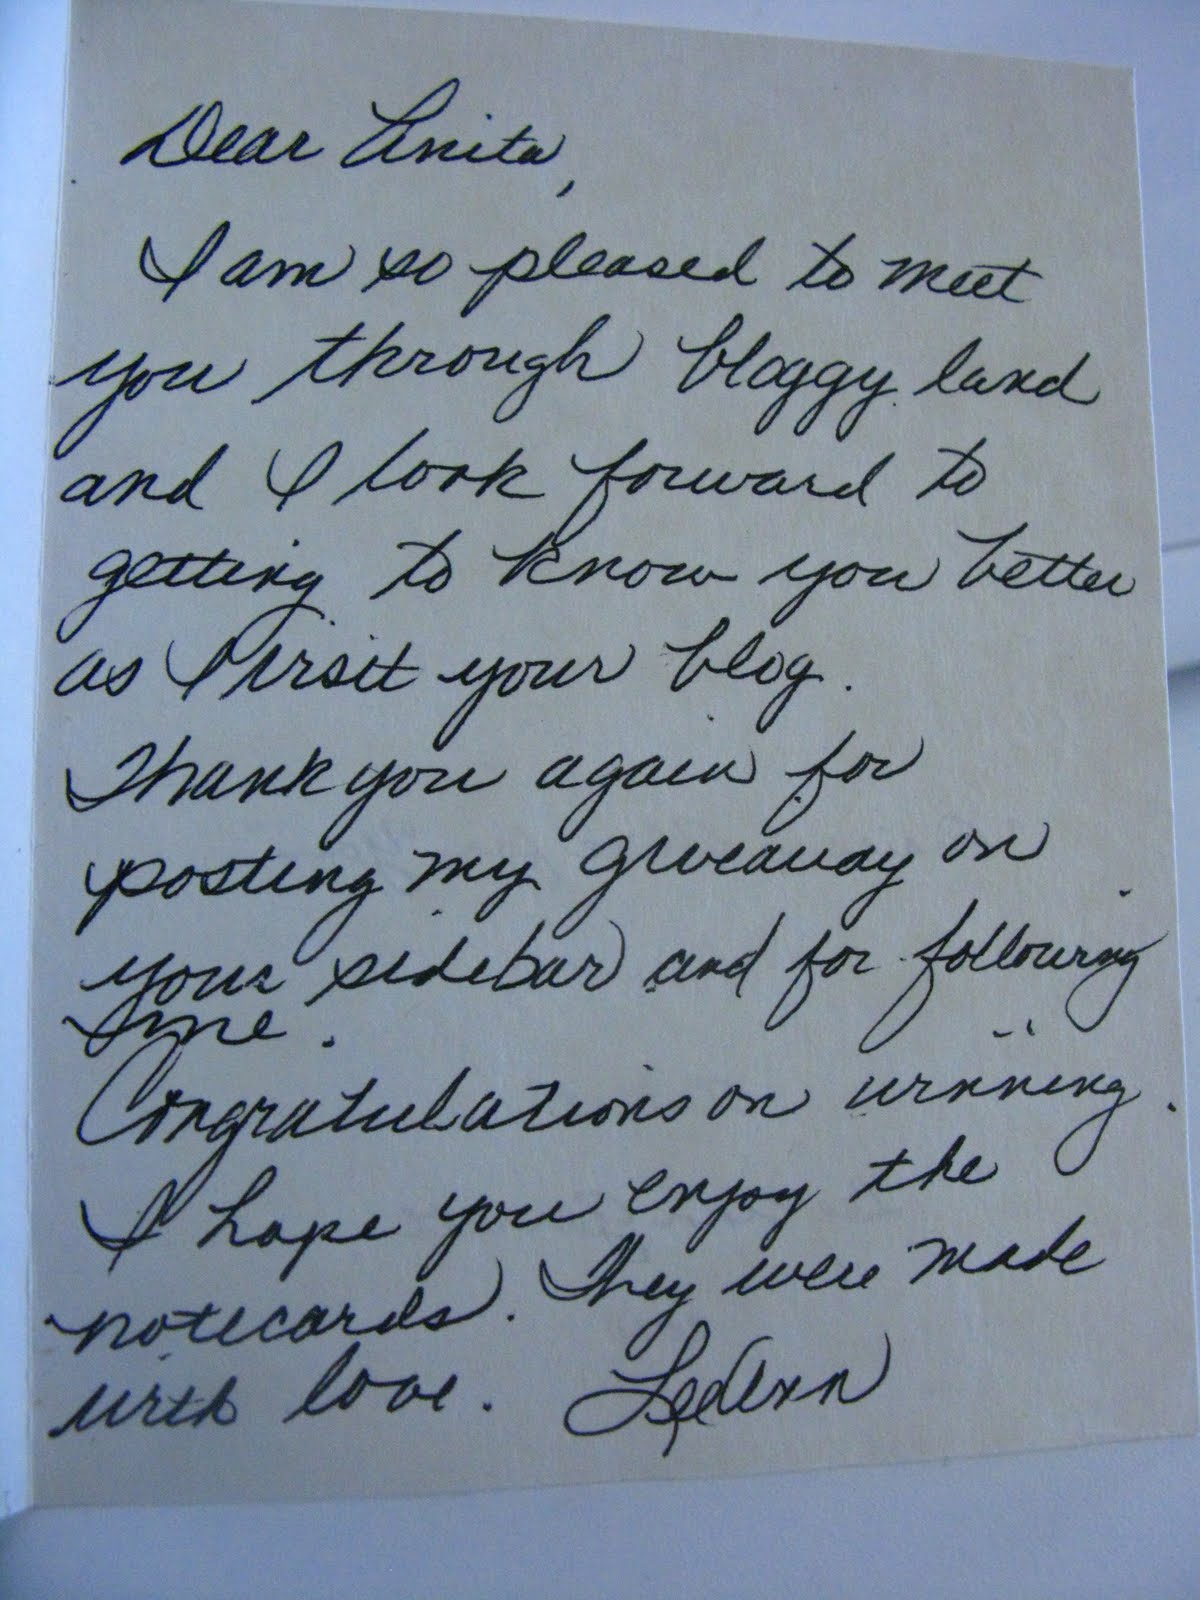 Dear Anita,
I am so pleased to meet
you through bloggy land
and I look forward to
getting to know you better
as I visit your blog.
Thank you again for
posting my giveaway on
your sidebar and for following
me.
Congratulations on winning.
I hope you enjoy the
notecards. They were made
with love. LeeAnn